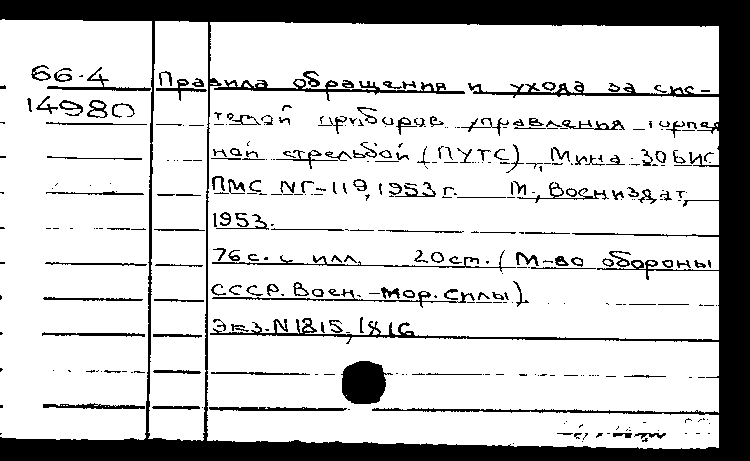 66.4 Правила обращения и ухода за сис-
14980 темой приборов управления торпед
ной стрельбой (ПУТС) „Мина-30БИС
ПМС №Г-119, 1953 г. М., Воениздат,
1953.
76 с. с илл. 20 см. (М-во обороны
СССР. Воен.-мор. силы).
Экз. N 1815, 1816